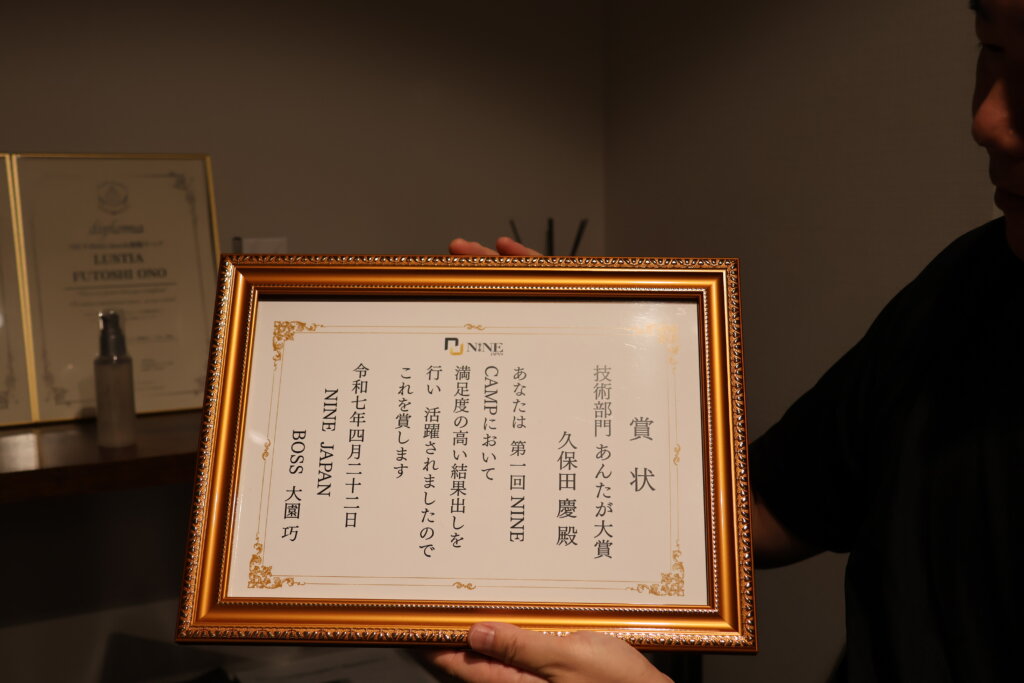 NINE
JAPAN
賞状
技術部門 あんたが大賞
久保田 慶 殿
あなたは 第一回 NINE
CAMPにおいて
満足度の高い結果出しを
行い 活躍されましたので
これを賞します
令和七年四月二十二日
NINE JAPAN
BOSS 大園 巧
diploma
LUSTIA
FUTOSHI ONO